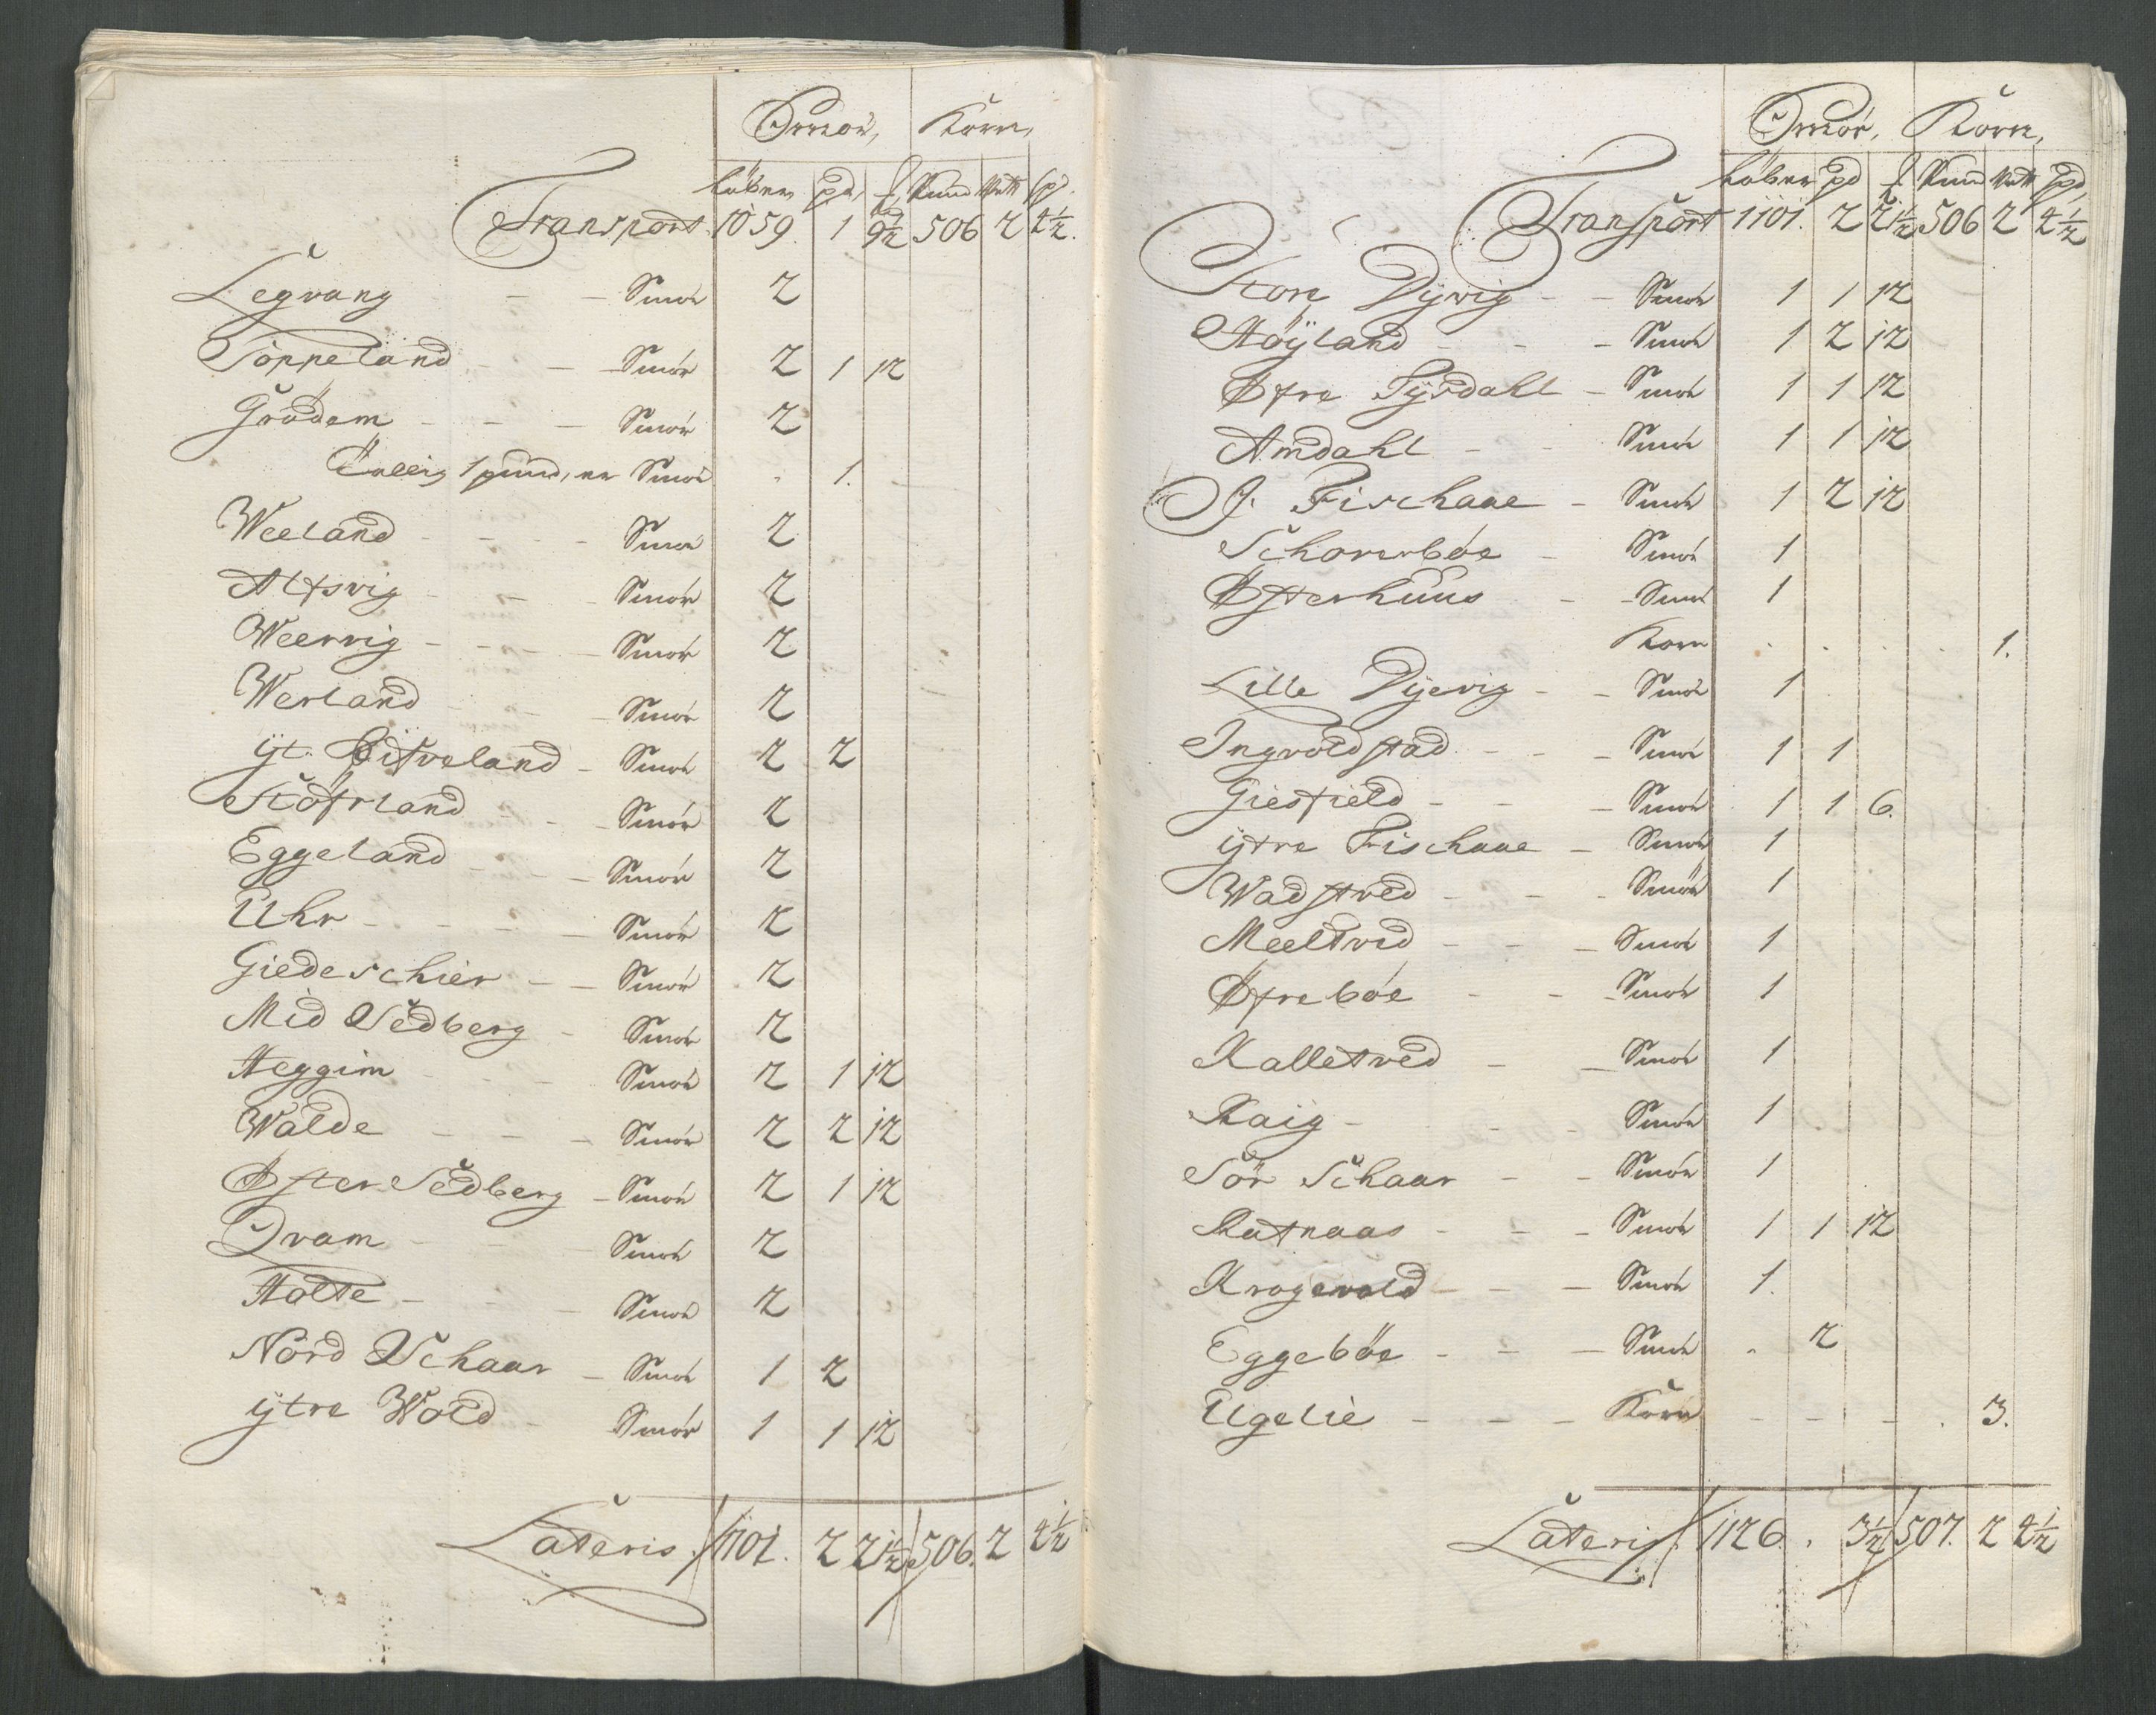 Smör, Korn,
Löber pd, Pund Vett Spd.
Transport 1059. 1 9½ 506 2 4½.
Legvang - - Smör 2
Töppeland - - Smör 2 1 12
Grödem - - - Smör 2
Item 1 pund, er Smör - 1.
Weeland - - - - Smör 2
Alfsvig - - - Smör 2
Weervig - - - - Smör 2
Werland - - - Smör 2
yt. Litveland - Smör 2 2
Stöfrland - - - Smör 2
Eggeland - - - Smör 2
Uhr - - - - Smör 2
Giedeschier - - Smör 2
Mid Sedberg - Smör 2
Heggim - - - Smör 2 1 12
Walde - - - Smör 2 2 12
Øster Sedberg - Smör 2 1 12
Qvam - - Smör 2
Holte - - - Smör 2
Nord Schaar - Smör 1 2
ytre Wold - Smör 1 1 12
Lateris. 1101. 2 21½ 506. 2 4½
Smör, Korn,
Löber pd Pund Vett Spd,
Transport 1101. 2 21½ 506 2 4½
Store Dyrvig - - Smör 1 1 12
Höyland - - - Smör 1 2 12
Øfre Tysdahl - Smör 1 1 12
Amdahl - - Smör 1 1 12
J. Fischaae - Smör 1 2 12
Schorerböe - Smör 1
Østerhuus - - Smör 1
Korn . . . . 1.
Lille Dyevig - - Smör 1
Ingvoldstad - - - Smör 1 1
Giesfield - - - Smör 1 1 6.
ytre Fischaae - Smör 1
Wadstved - - - Smör 1
Meeltved - - - Smör 1
Øfreböe - - - Smör 1
Kalletved - - Smör 1
Haig - - - Smör 1
Sör Schaar - - Smör 1
Ratnaas - - - Smör 1 1 12
Kragevold - - - Smör 1.
Eggeböe - - - Smör - 2
Ugelie - - - Korn - - - - . 3.
Lateris. 1126. . 3½ 507. 2 4½